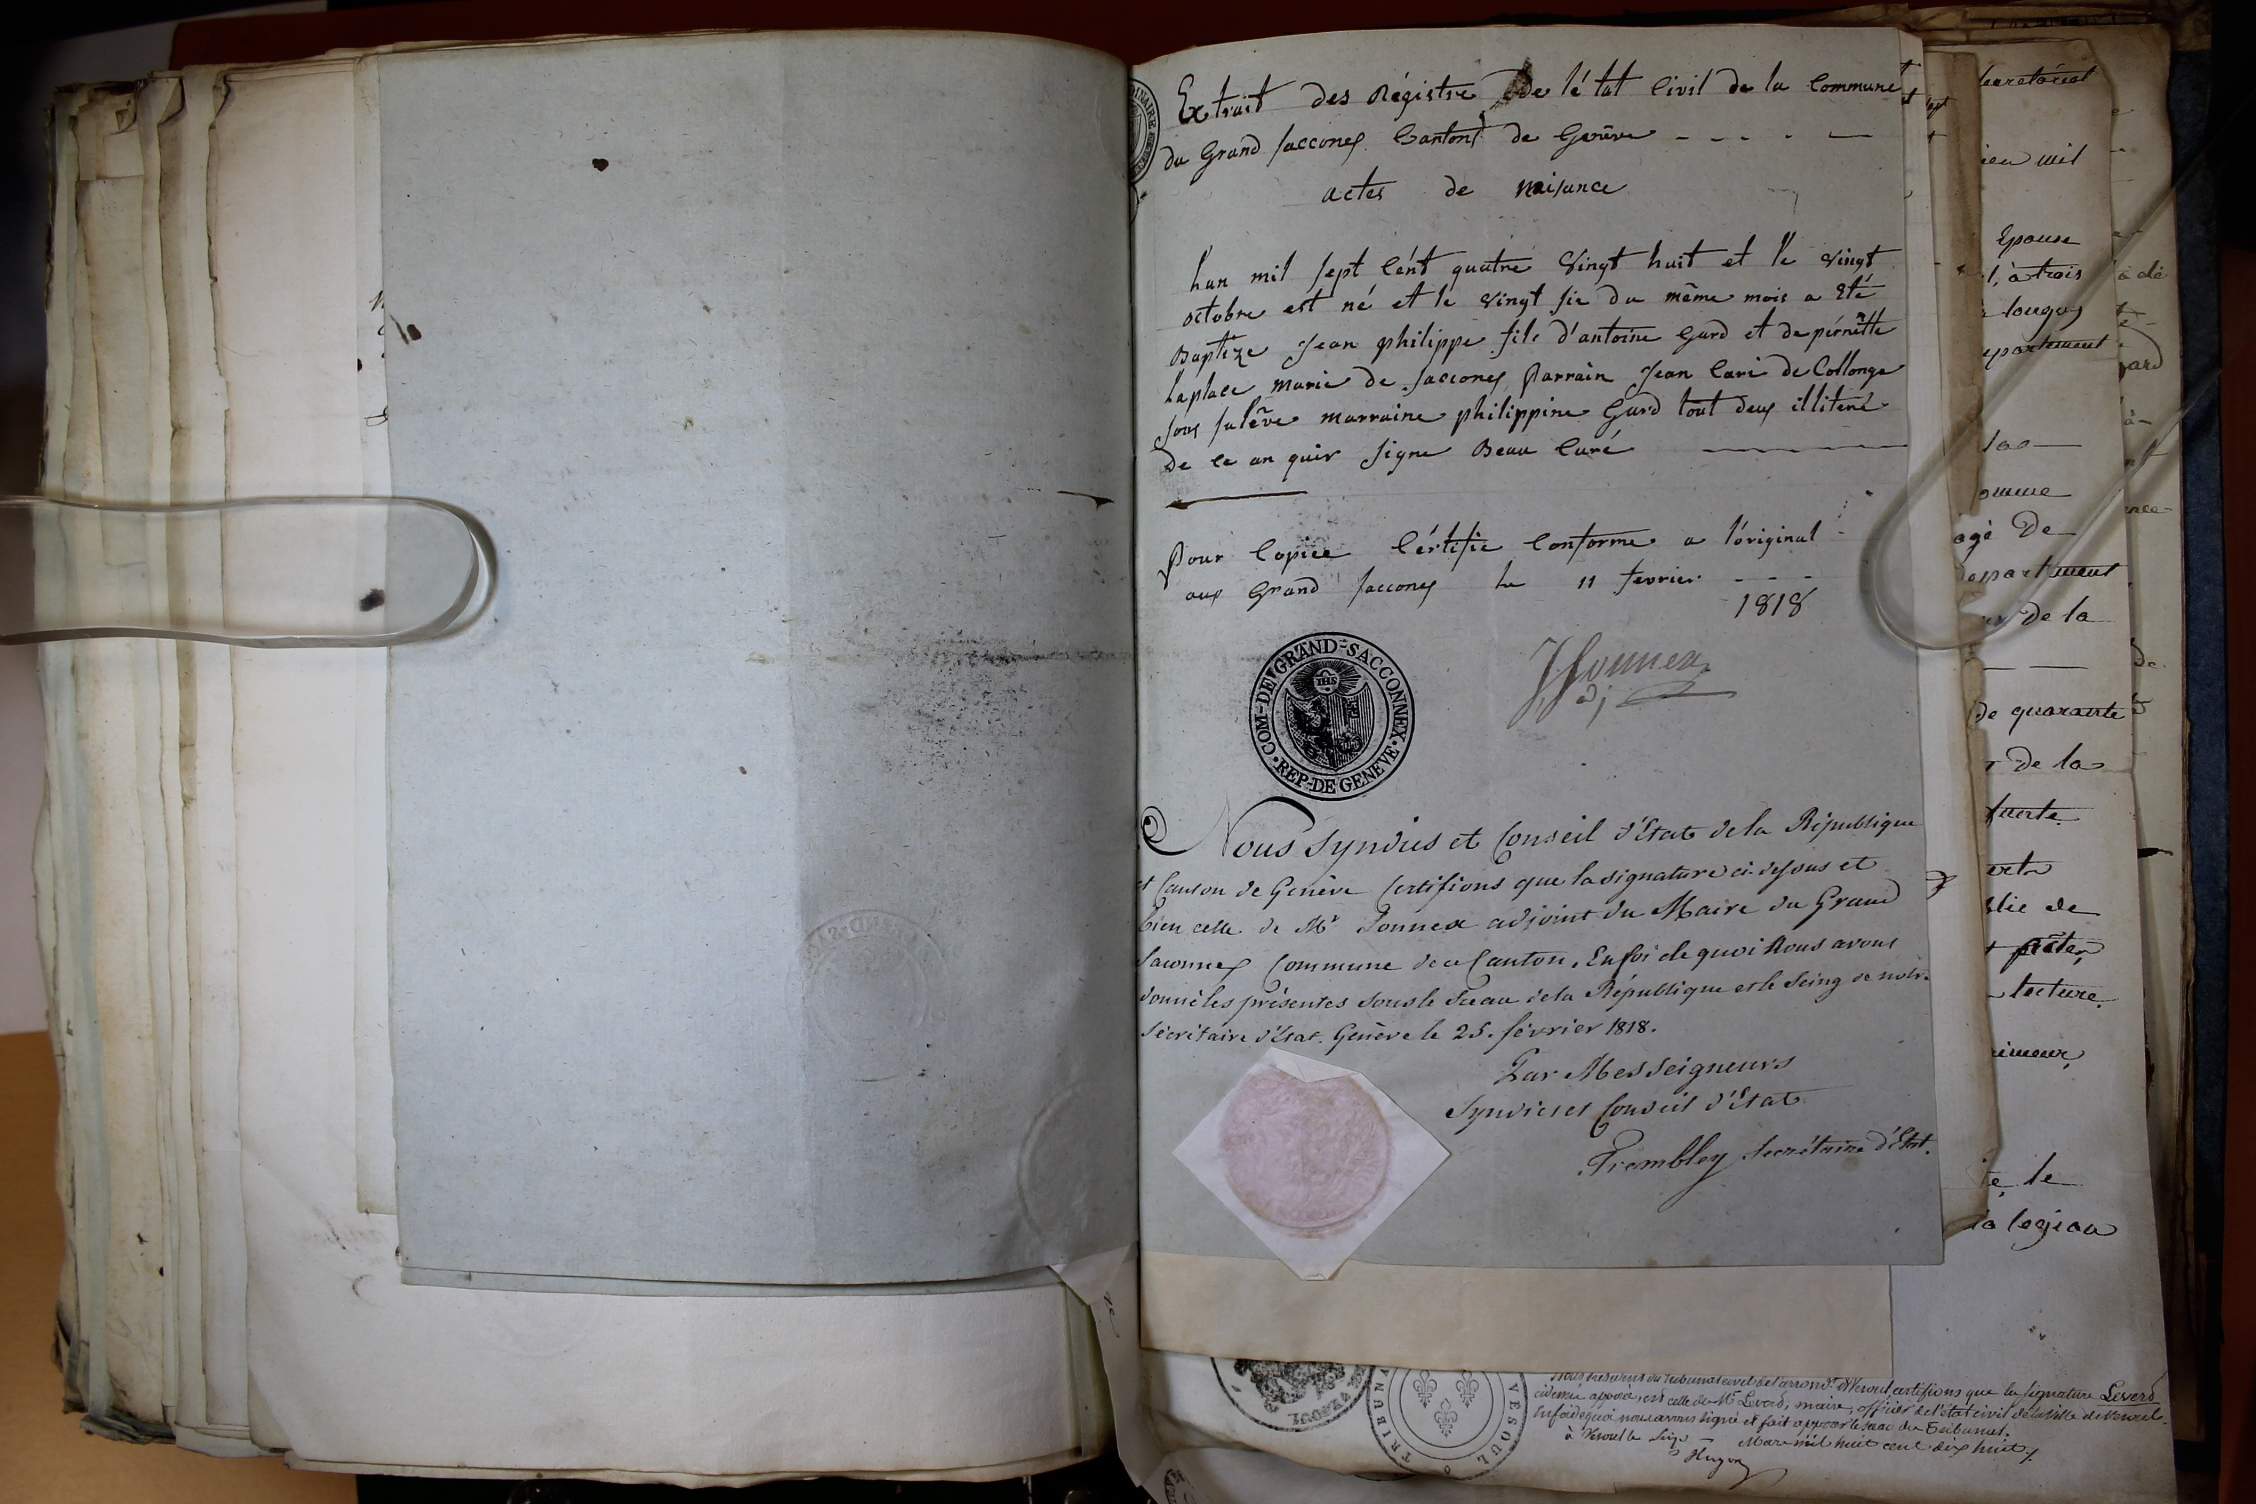 Extrait des Régistre de létat Civil de la Commune
du Grand Sacconex Canton de Genève
actes de naisance
Lan mil sept Cént quatre Vingt huit et le vingt
octobre est né et le vingt sic du même mois a Eté
Baptize Jean philippe fils d'antoine Gard et de pérnette
Laplace marie de Sacconex Parrain Jean Cari de Collonge
sous salêve marraine philippine Gard tout deux illiteré
de ce an quir signe Beau Curé
Pour Copiee Cértifie Conforme a lóriginal
aux Grand Sacconex le 11 fevrier
1818
COM-DE GRAND-SACCONNEX
IHS
REP-DE GENEVE
JJonnex
adj
Nous Syndics et Conseil d'État de la République
et Canton de Genève Certifions que la signature ci-dessus est
bien celle de Mr Jonnex adjoint du Maire du Grand
Saconnex Commune de ce Canton. En foi de quoi Nous avons
donné les présentes sous le Sceau de la République et le Seing de notre
Secrétaire d'État. Genève le 25. février 1818.
Par Messeigneurs
Syndics et Conseil d'État
Trembley Secrétaire d'Etat.
Secretariat
mil
Epouse
à trois
longuy
epartement
omme
agé De
Departement
De la
De quarante
De la
lecture
le
la légion
TRIBUN
VESOUL
Nous Président du Tribunal civil de l'arrond.t de Vesoul certifions que la signature Leverd
ci dessus apposée, est celle de Mr Leverd, maire, officier de l'état civil de la Ville de Vesoul.
En foi de quoi nous avons signé et fait apposer le sceau du Tribunal.
à Vesoul le Seize Mars mil huit cent dix huit
Hugon